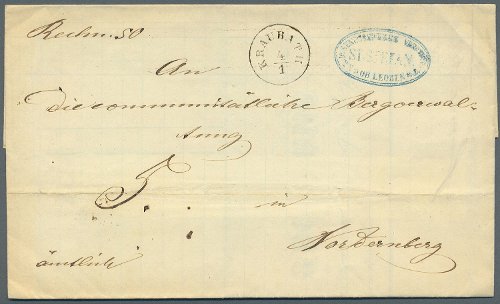 Rechn. 50.
KRAUBATH
4/1
ST. STEFAN
OB LEOBEN
An
Die communitätliche Bergverwal-
tung
5.
in
Vordernberg
ämtlich